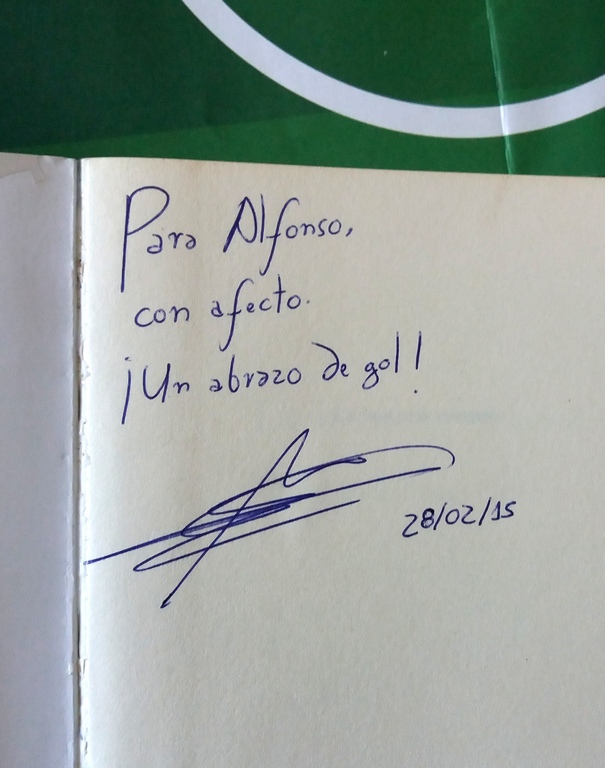 Para Alfonso,
con afecto.
¡Un abrazo de gol!
28/02/15